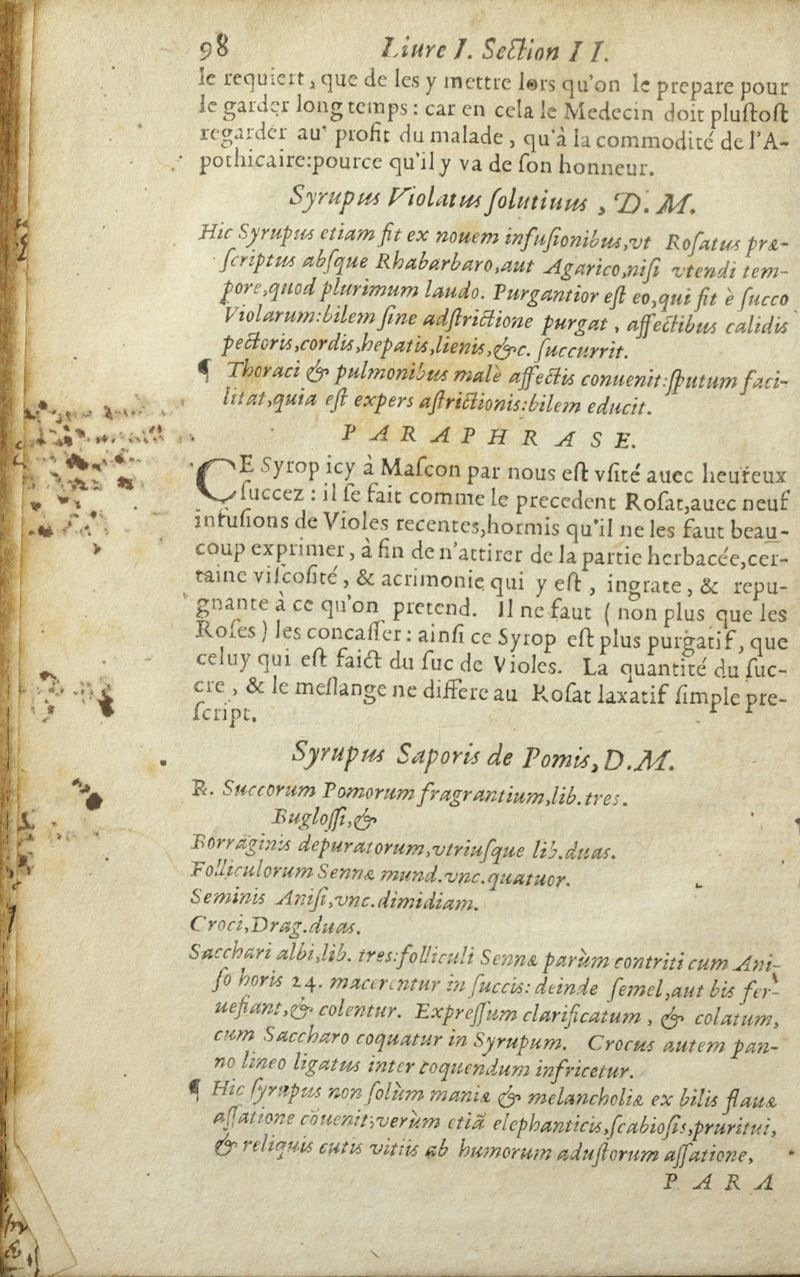 98 Liure I. Section II.
le requiert, que de les y mettre lors qu'on le prepare pour
le garder long temps : car en cela le Medecin doit pluſtoſt
regarder au' profit du malade , qu'à la commodité de l'A-
pothicaire:pource qu'il y va de ſon honneur.
Syrupus Violatus ſolutiuus , D. M.
Hic Syrupus etiam fit ex nouem infuſionibus,vt Roſatus præ-
ſcriptus abſque Rhabarbaro,aut Agarico,niſi vtendi tem-
pore,quod plurimum laudo. Purgantior eſt eo,qui fit è ſucco
Violarum:bilem ſine adſtrictione purgat , affectibus calidis
pectoris,cordis,hepatis,lienis,&c. ſuccurrit.
¶ Thoraci & pulmonibus malè affectis conuenit:ſputum faci-
litat,quia eſt expers aſtrictionis:bilem educit.
PARAPHRASE.
CE Syrop icy à Maſcon par nous eſt vſité auec heureux
ſuccez : il ſe fait comme le precedent Roſat,auec neuf
infuſions de Violes recentes,hormis qu'il ne les faut beau-
coup exprimer, à fin de n'attirer de la partie herbacée,cer-
taine viſcoſité , & acrimonie qui y eſt , ingrate, & repu-
gnante à ce qu'on pretend. Il ne faut ( non plus que les
Roſes ) les concaſſer : ainſi ce Syrop eſt plus purgatif, que
celuy qui eſt faict du ſuc de Violes. La quantité du ſuc-
cre , & le meſlange ne differe au Roſat laxatif ſimple pre-
ſcript.
Syrupus Saporis de Pomis, D.M.
℞. Succorum Pomorum fragrantium,lib. tres.
Bugloſſi,&
Borraginis depuratorum,vtriuſque lib.duas.
Folliculorum Sennæ mund.vnc.quatuor.
Seminis Aniſi,vnc.dimidiam.
Croci,Drag.duas.
Sacchari albi,lib. tres:folliculi Sennæ parùm contriti cum Ani-
ſo horis 24. macerentur in ſuccis: deinde ſemel,aut bis fer-
uefiant,& colentur. Expreſſum clarificatum , & colatum,
cum Saccharo coquatur in Syrupum. Crocus autem pan-
no lineo ligatus inter coquendum infricetur.
¶ Hic ſyrupus non ſolùm maniæ & melancholiæ ex bilis flauæ
aſſatione cõuenit;verùm etiã elephanticis,ſcabioſis,pruritui,
& reliquis cutis vitiis ab humorum aduſtorum aſſatione,
PARA